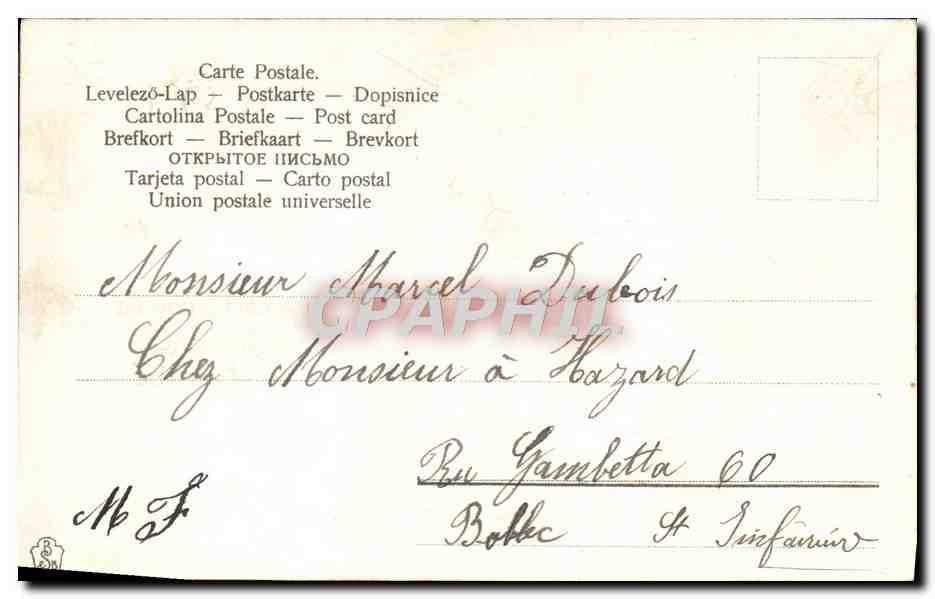 Carte Postale.
Levelező-Lap — Postkarte — Dopisnice
Cartolina Postale — Post card
Brefkort — Briefkaart — Brevkort
ОТКРЫТОЕ ПИСЬМО
Tarjeta postal — Carto postal
Union postale universelle
Monsieur Marcel Dubois
CPAPHIL
Chez Monsieur à Hazard
Ru Gambetta 60
M F
Bolbec St